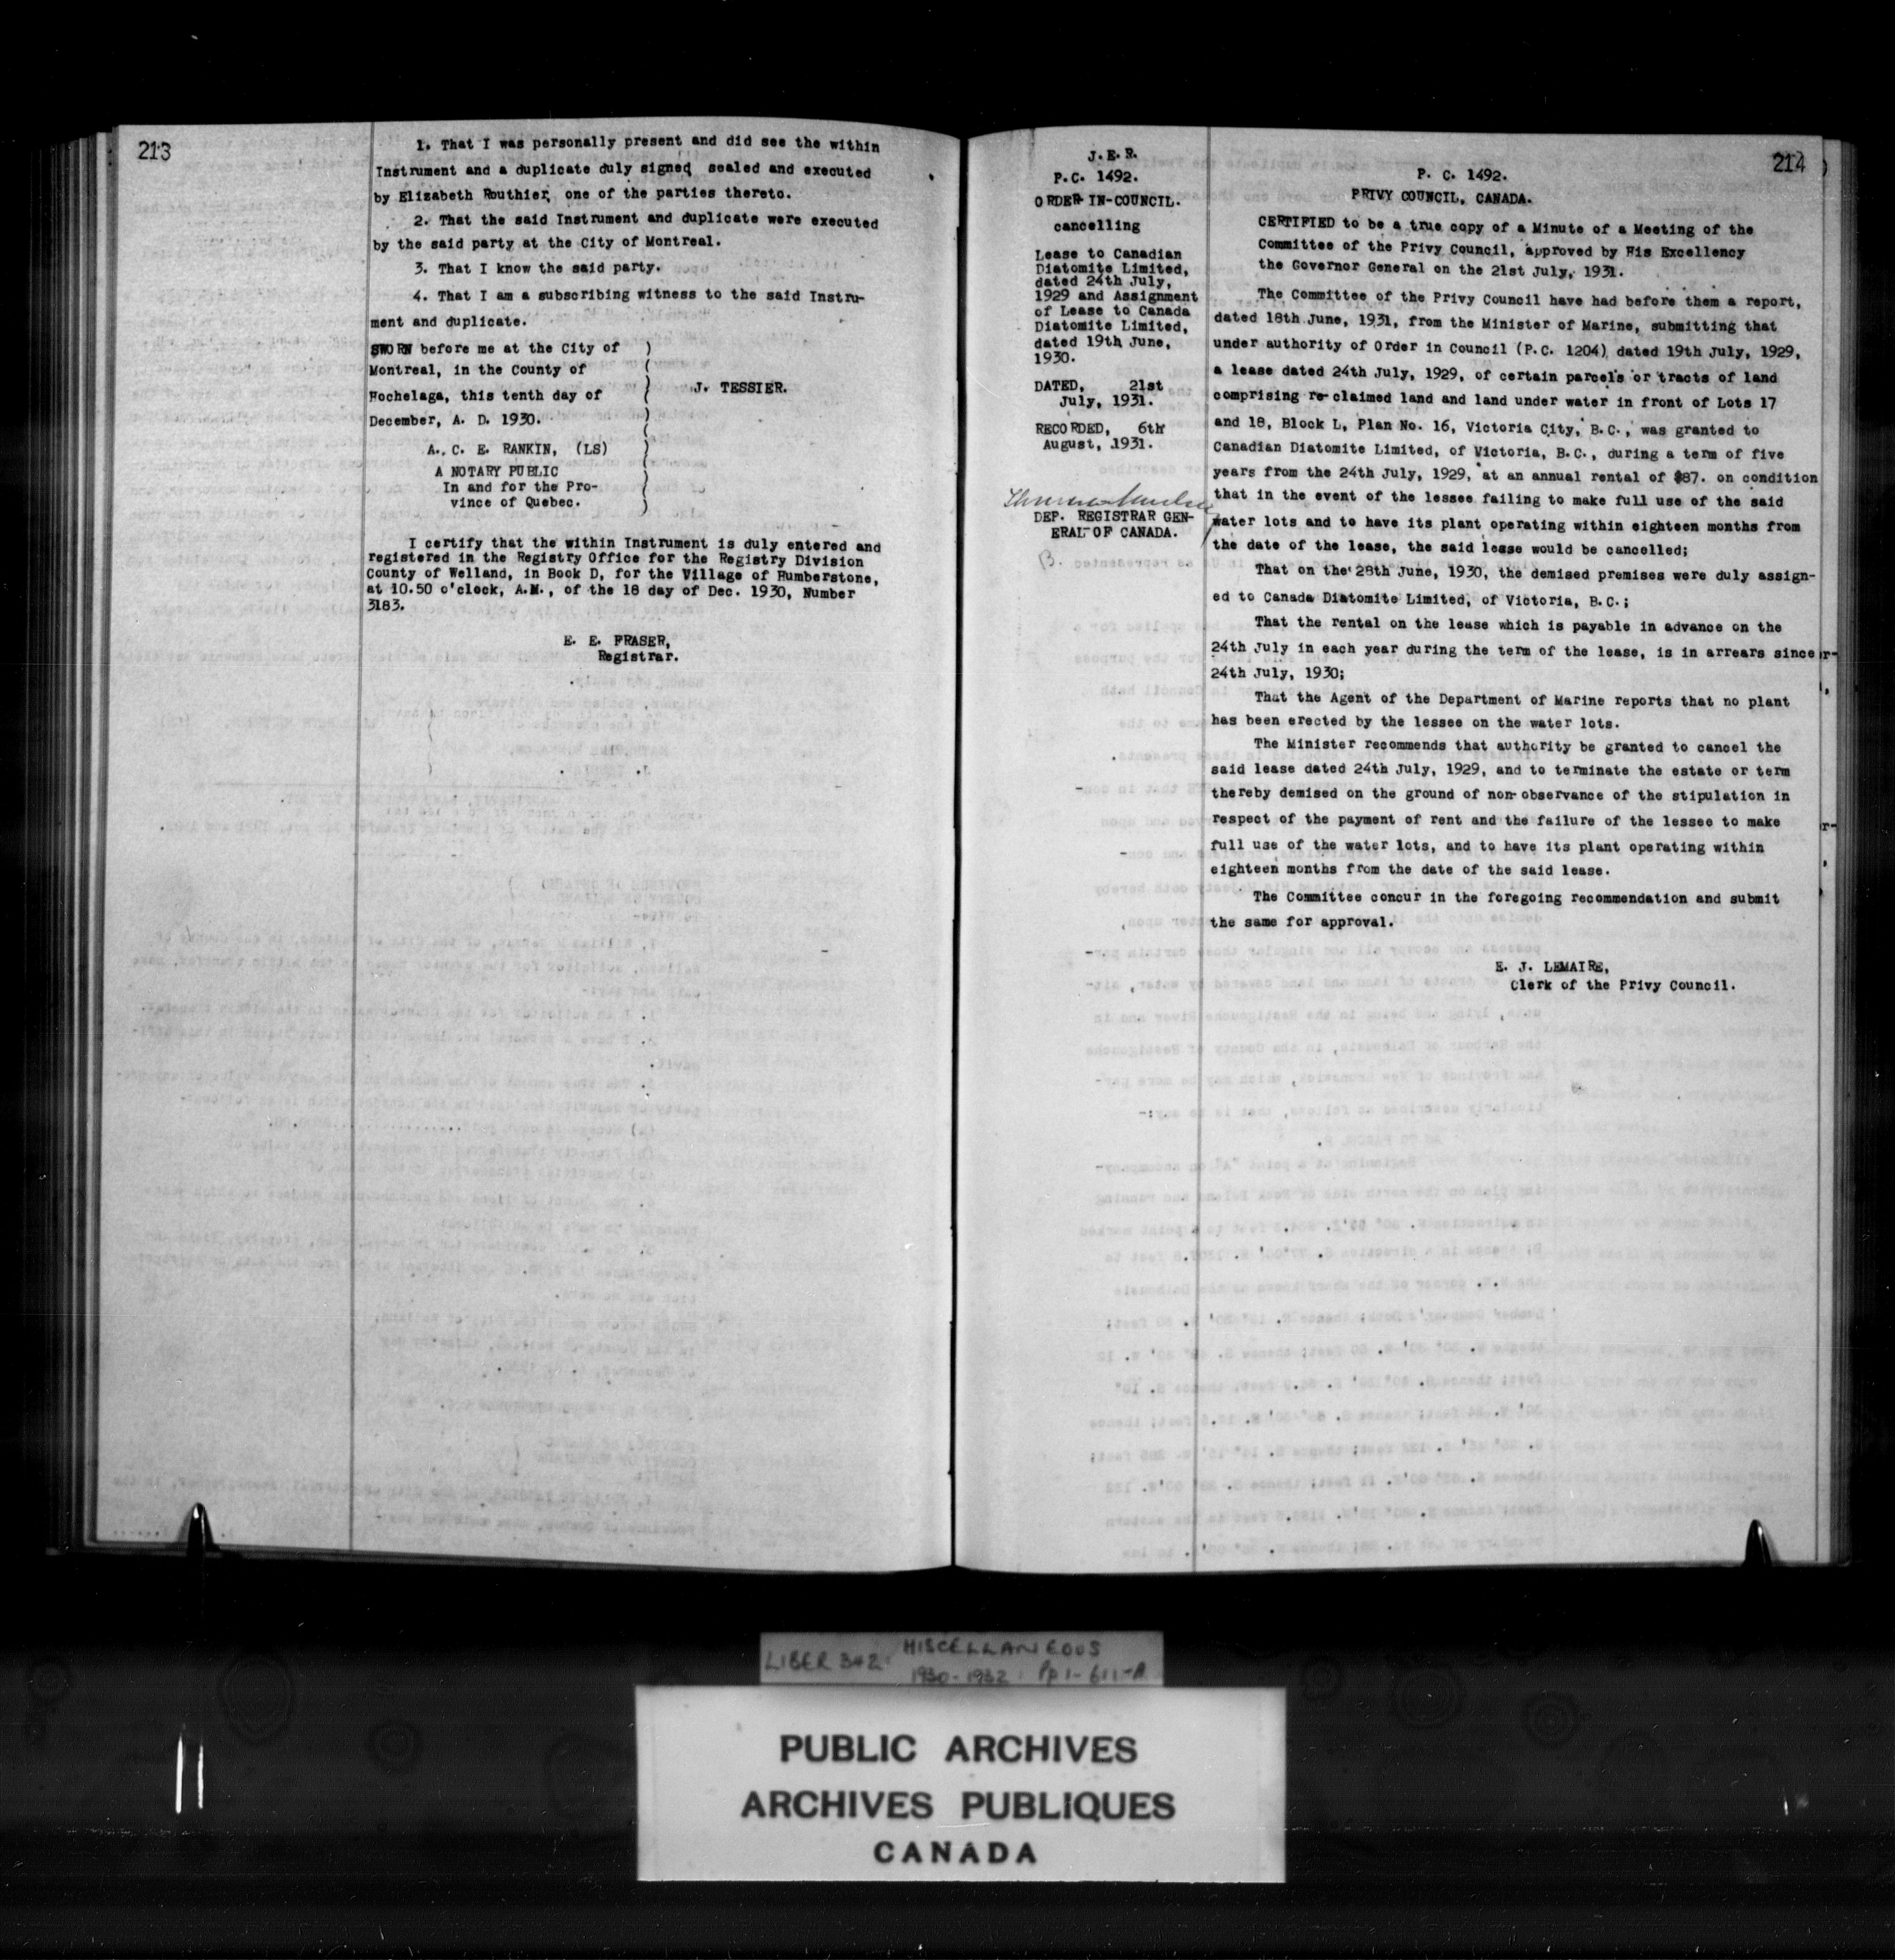 213
1. That I was personally present and did see the within
Instrument and a duplicate duly signed sealed and executed
by Elizabeth Routhier, one of the parties thereto.
2. That the said Instrument and duplicate were executed
by the said party at the City of Montreal.
3. That I know the said party.
4. That I am a subscribing witness to the said Instru-
ment and duplicate.
SWORN before me at the City of )
Montreal, in the County of (
Hochelaga, this tenth day of ) J. TESSIER.
December, A. D. 1930. )
A. C. E. RANKIN, (LS) )
A NOTARY PUBLIC (
In and for the Pro- )
vince of Quebec. )
I certify that the within Instrument is duly entered and
registered in the Registry Office for the Registry Division
County of Welland, in Book D, for the Village of Humberstone,
at 10.50 o'clock, A.M., of the 18 day of Dec. 1930, Number
3183.
E. E. FRASER,
Registrar.
J.E.R.
P.C. 1492.
ORDER-IN-COUNCIL.
cancelling
Lease to Canadian
Diatomite Limited,
dated 24th July,
1929 and Assignment
of Lease to Canada
Diatomite Limited,
dated 19th June,
1930.
DATED, 21st
July, 1931.
RECORDED, 6th
August, 1931.
DEP. REGISTRAR GEN-
ERAL OF CANADA.
B.
214
P. C. 1492.
PRIVY COUNCIL, CANADA.
CERTIFIED to be a true copy of a Minute of a Meeting of the
Committee of the Privy Council, approved by His Excellency
the Governor General on the 21st July, 1931.
The Committee of the Privy Council have had before them a report,
dated 18th June, 1931, from the Minister of Marine, submitting that
under authority of Order in Council (P.C. 1204) dated 19th July, 1929,
a lease dated 24th July, 1929, of certain parcels or tracts of land
comprising re-claimed land and land under water in front of Lots 17
and 18, Block L, Plan No. 16, Victoria City, B.C., was granted to
Canadian Diatomite Limited, of Victoria, B.C., during a term of five
years from the 24th July, 1929, at an annual rental of $87. on condition
that in the event of the lessee failing to make full use of the said
water lots and to have its plant operating within eighteen months from
the date of the lease, the said lease would be cancelled;
That on the 28th June, 1930, the demised premises were duly assign-
ed to Canada Diatomite Limited, of Victoria, B.C.;
That the rental on the lease which is payable in advance on the
24th July in each year during the term of the lease, is in arrears since
24th July, 1930;
That the Agent of the Department of Marine reports that no plant
has been erected by the lessee on the water lots.
The Minister recommends that authority be granted to cancel the
said lease dated 24th July, 1929, and to terminate the estate or term
thereby demised on the ground of non-observance of the stipulation in
respect of the payment of rent and the failure of the lessee to make
full use of the water lots, and to have its plant operating within
eighteen months from the date of the said lease.
The Committee concur in the foregoing recommendation and submit
the same for approval.
E. J. LEMAIRE,
Clerk of the Privy Council.
LIBER 342: MISCELLANEOUS
1930-1932: Pp 1-611-A
PUBLIC ARCHIVES
ARCHIVES PUBLIQUES
CANADA